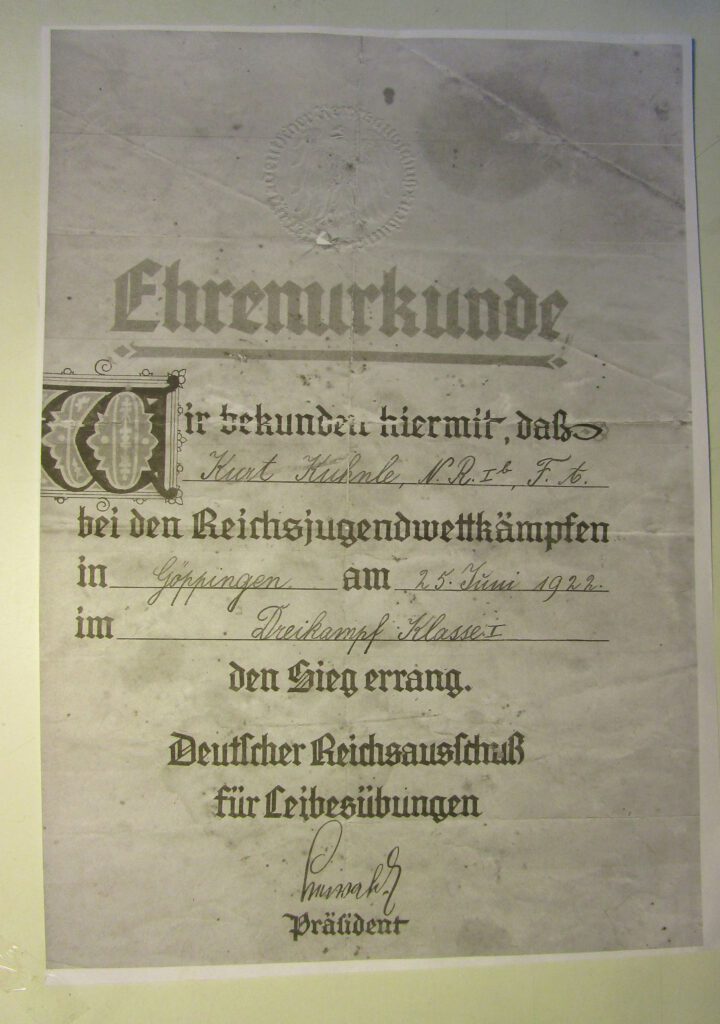 Deutscher Reichsausschuß
Ehrenurkunde
Wir bekunden hiermit, daß
Kurt Kuhnle, N. R. I b, F. A.
bei den Reichsjugendwettkämpfen
in Göppingen am 25. Juni 1922.
im Dreikampf Klasse I
den Sieg errang.
Deutscher Reichsausschuß
für Leibesübungen
Präsident